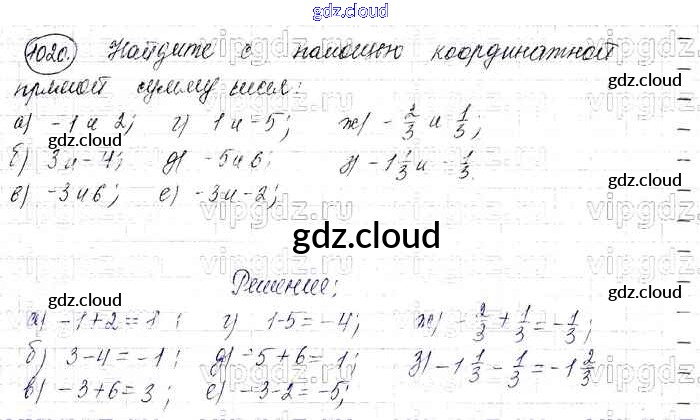 gdz.cloud
1020. Найдите с помощью координатной
gdz.cloud
прямой сумму чисел:
а) -1 и 2; г) 1 и -5; ж) -2/3 и 1/3;
б) 3 и -4; д) -5 и 6; з) -1 1/3 и -1/3.
в) -3 и 6; е) -3 и -2;
gdz.cloud
gdz.cloud
gdz.cloud
Решение:
gdz.cloud
gdz.cloud
а) -1+2=1; г) 1-5=-4; ж) -2/3+1/3=-1/3;
б) 3-4=-1; д) -5+6=1; з) -1 1/3-1/3=-1 2/3
в) -3+6=3; е) -3-2=-5;
gdz.cloud
gdz.cloud